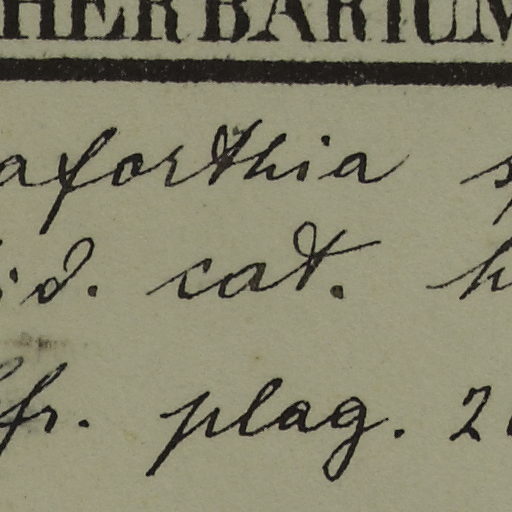 HERBARIUM
aforthia s
id. cat. h
fr. plag. 2